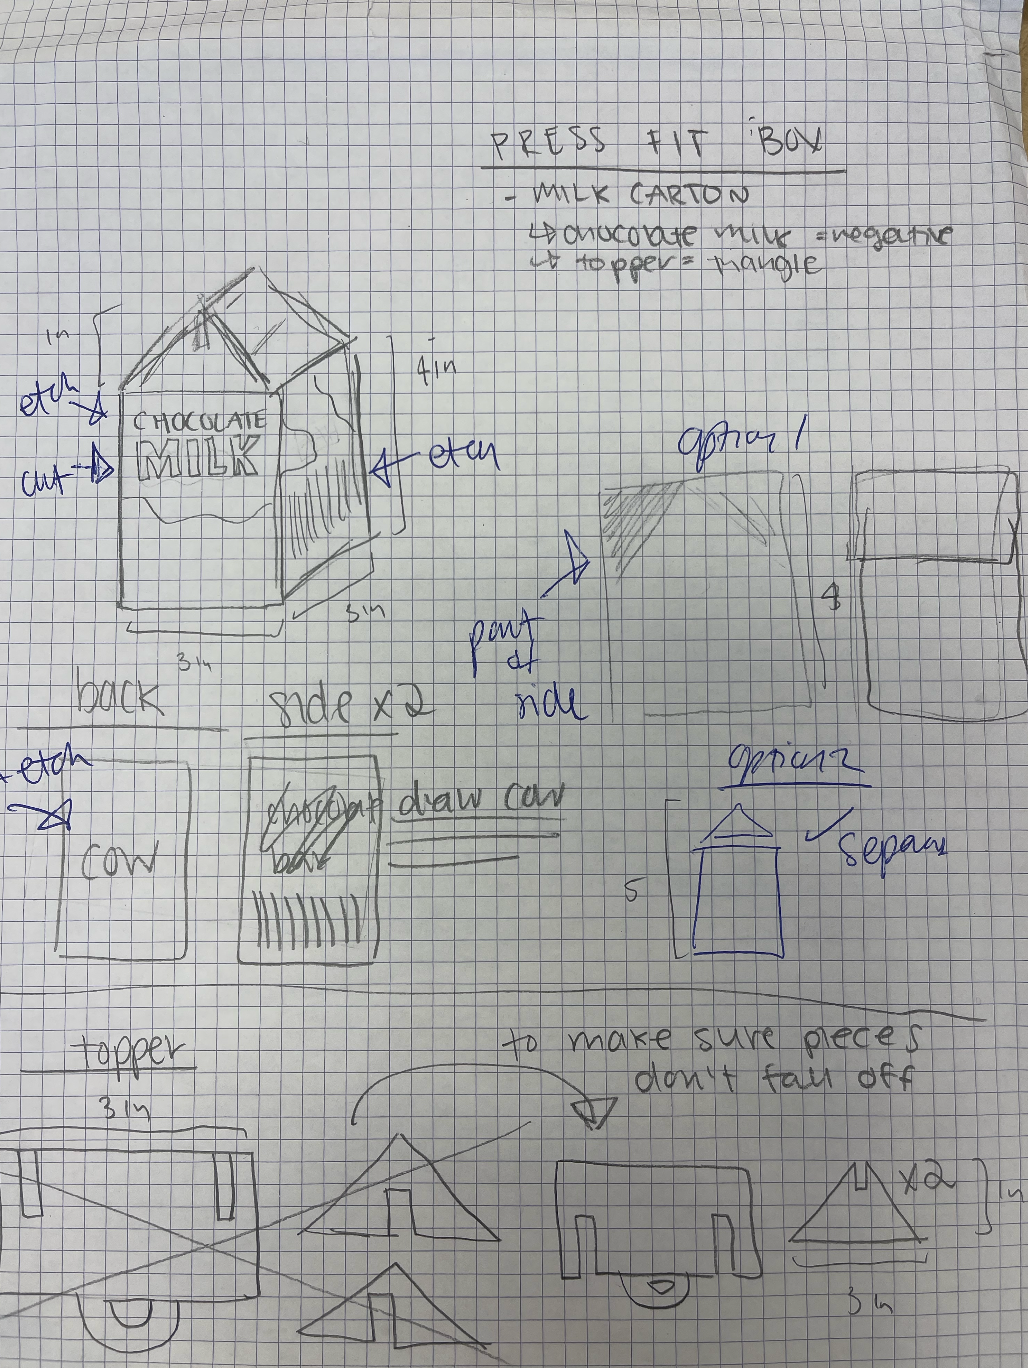 PRESS FIT BOX
- MILK CARTON
↳ chocolate milk = negative
↳ topper = triangle
1in
etch
cut
CHOCOLATE
MILK
4in
etch
3in
3in
option 1
part
of
side
4
back
etch
COW
side x2
draw cow
option 2
5
✓
topper
3in
to make sure pieces
don't fall off
x2
1in
3in